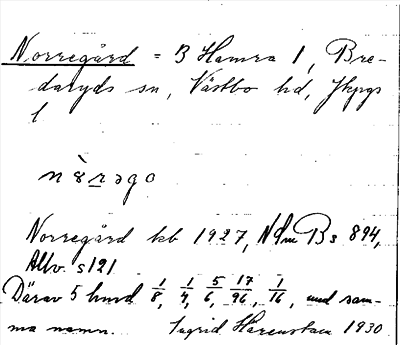 Norregård = B Hamra 1, Bre-
daryds sn, Västbo hd, Jkpgs
l
nòrego
Norregård kb 1927, NdmBs 894,
Allv. s121
Därav 5 hmd 1/8, 1/4, 5/6, 17/96, 1/16, med sam-
ma namn. Ingrid Harenstam 1930